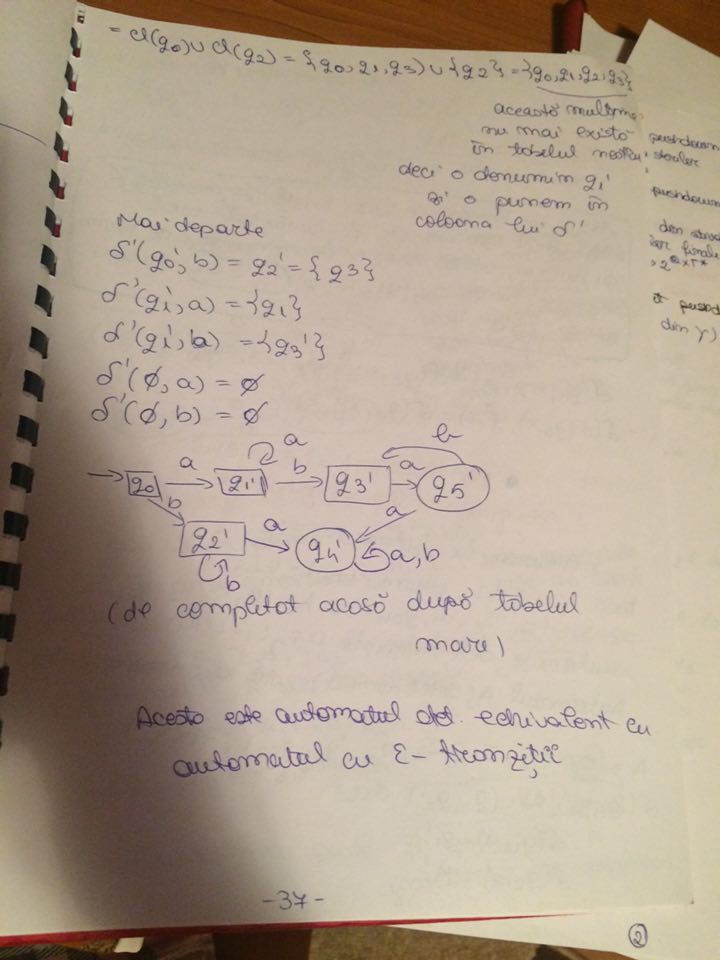 = Cl(q0) ∪ Cl(q2) = {q0, q1, q3} ∪ {q2} = {q0, q1, q2, q3}
această mulțime
nu mai există
în tabelul nostru
deci o denumim q1'
și o punem în
coloana lui δ'
Mai departe
δ'(q0', b) = q2' = {q3}
δ'(q1', a) = {q1}
δ'(q1', b) = {q3'}
δ'(∅, a) = ∅
δ'(∅, b) = ∅
q0 a q1' a b q3' a q5' b
b q2' b a q4' a a,b
(de completat acasă după tabelul
mare)
Acesta este automatul det. echivalent cu
automatul cu ε- tranziții
-37-
pushdown
pushdown
din
, 2^Q×Γ*
din γ)
2